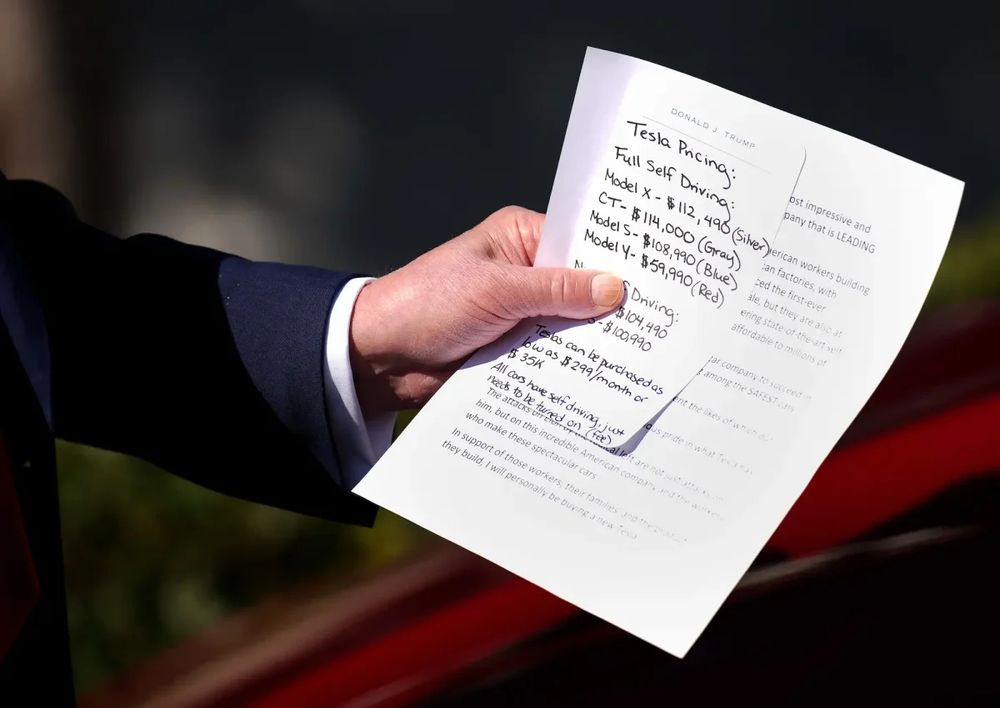 DONALD J. TRUMP
Tesla Pricing:
Full Self Driving:
Model X- $112,490 (Silver)
CT- $114,000 (Gray)
Model S- $108,990 (Blue)
Model Y- $59,990 (Red)
Driving:
$104,490
S- $100,990
Teslas can be purchased as
low as $299/month or
$35K
All cars have self driving, just
needs to be turned on (fee)
ost impressive and
pany that is LEADING
erican workers building
can factories, with
ced the first-ever
ale, but they are also at
ering state-of-the-art self
affordable to millions of
ar company to succeed in
among the SAFEST cars
ent the likes of which our
ous pride in what Tesla has
The attacks
left are not just attacks on
him, but on this incredible American company and the workers
who make these spectacular cars.
In support of those workers, their families, and the product
they build, I will personally be buying a new Tesla